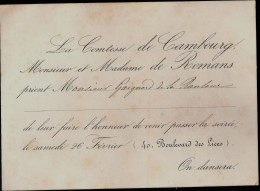 La Comtesse de Cambourg,
Monsieur et Madame de Romans
prient Monsieur Guignard de la
de leur faire l'honneur de venir passer la soirée,
le samedi 26 Février (40, Boulevard des Lices).
On dansera.